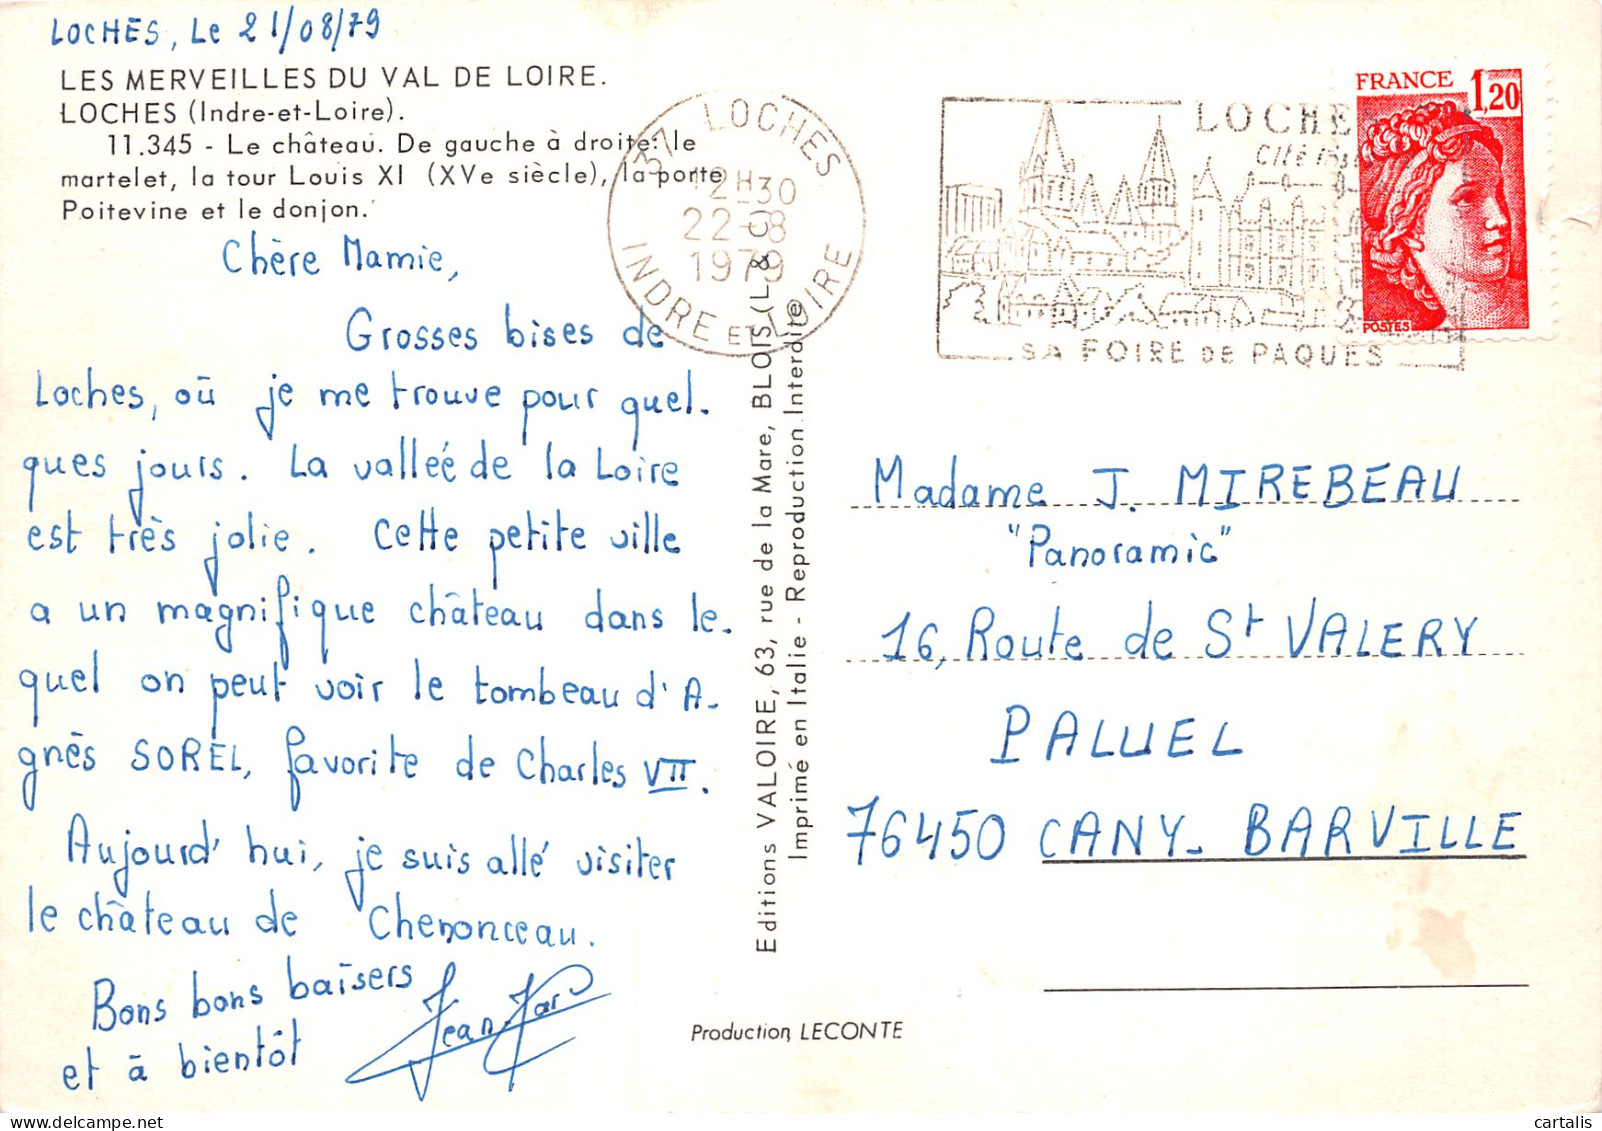 LOCHES, Le 21/08/79
LES MERVEILLES DU VAL DE LOIRE.
LOCHES (Indre-et-Loire).
11.345 - Le château. De gauche à droite: le
martelet, la tour Louis XI (XVe siècle), la porte
Poitevine et le donjon.
Chère Mamie,
Grosses bises de
Loches, où je me trouve pour quel-
ques jours. La vallée de la Loire
est très jolie. Cette petite ville
a un magnifique château dans le-
quel on peut voir le tombeau d'A-
gnès SOREL, favorite de Charles VII.
Aujourd'hui, je suis allé visiter
le château de Chenonceau.
Bons bons baisers
et à bientôt
Jean-Marc
37 LOCHES
12H30
22-8
1979
INDRE ET LOIRE
Editions VALOIRE, 63, rue de la Mare, BLOIS (L & C)
Imprimé en Italie - Reproduction Interdite
Production LECONTE
LOCHE
Cité
SA FOIRE DE PAQUES
FRANCE 1,20
POSTES
Madame J. MIREBEAU
"Panoramic"
16, Route de St VALERY
PALUEL
76450 CANY-BARVILLE
delcampe.net
cartalis